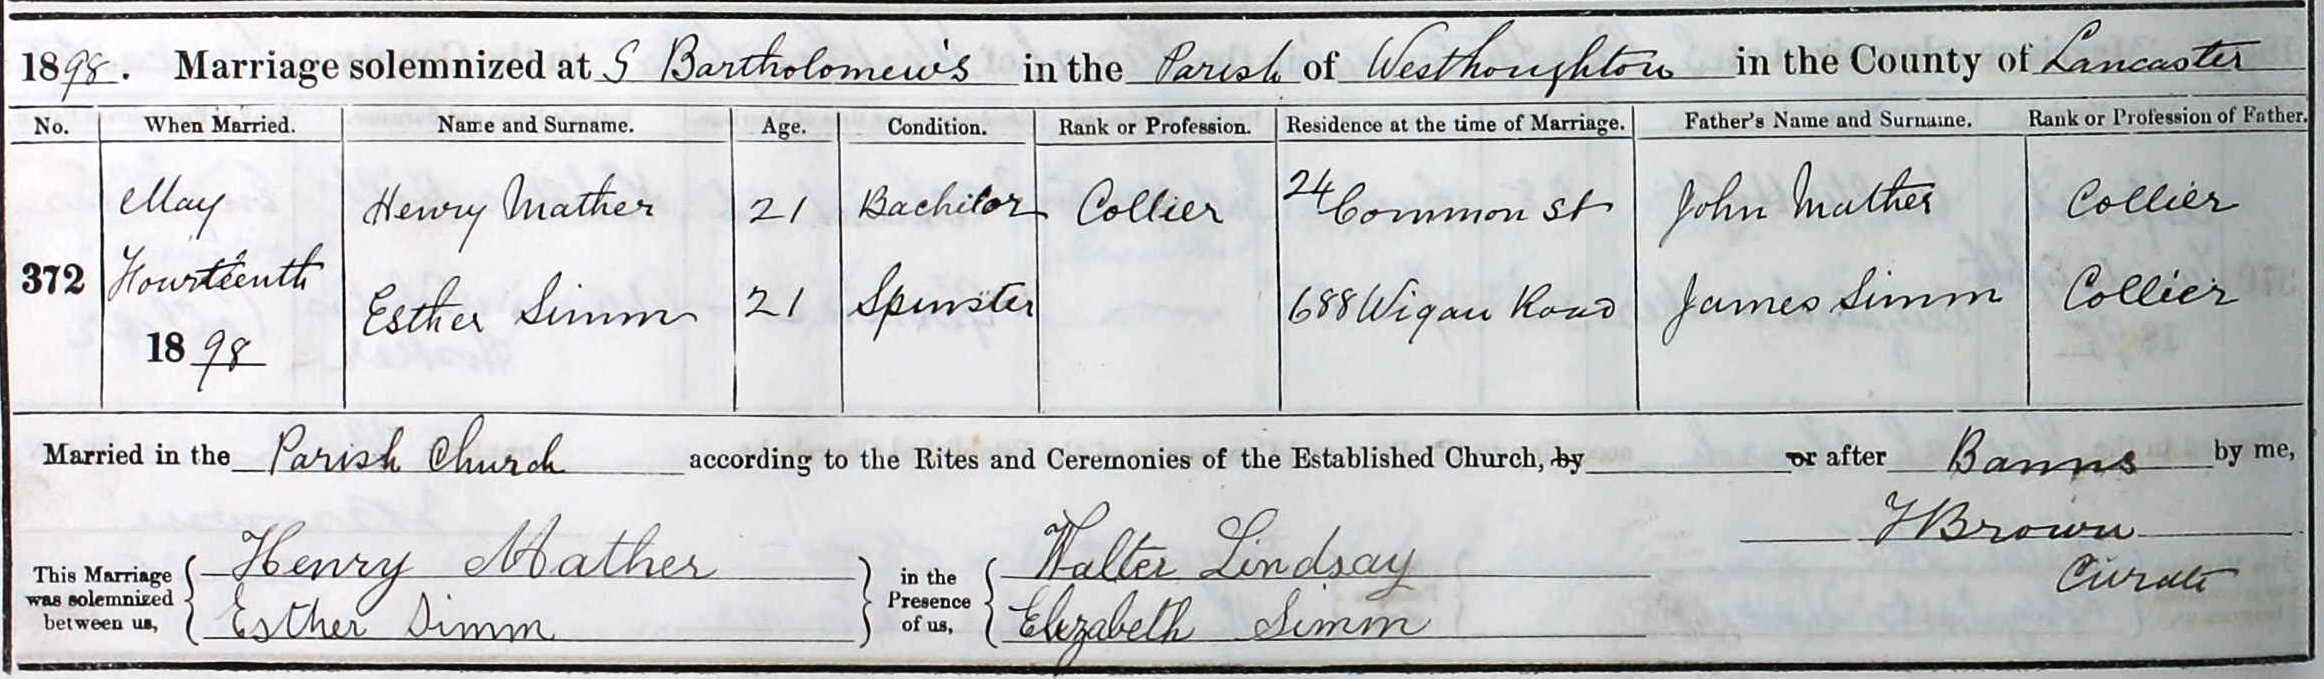 1898. Marriage solemnized at S Bartholomew's in the Parish of Westhoughton in the County of Lancaster
No. When Married. Name and Surname. Age. Condition. Rank or Profession. Residence at the time of Marriage. Father's Name and Surname. Rank or Profession of Father.
372
May
Fourteenth
1898
Henry Mather 21 Bachelor Collier 24 Common St John Mather Collier
Esther Simm 21 Spinster 688 Wigan Road James Simm Collier
Married in the Parish Church according to the Rites and Ceremonies of the Established Church, by or after Banns by me,
Brown
Curate
This Marriage was solemnized between us,
Henry Mather
Esther Simm
in the Presence of us,
Walter Lindsay
Elizabeth Simm